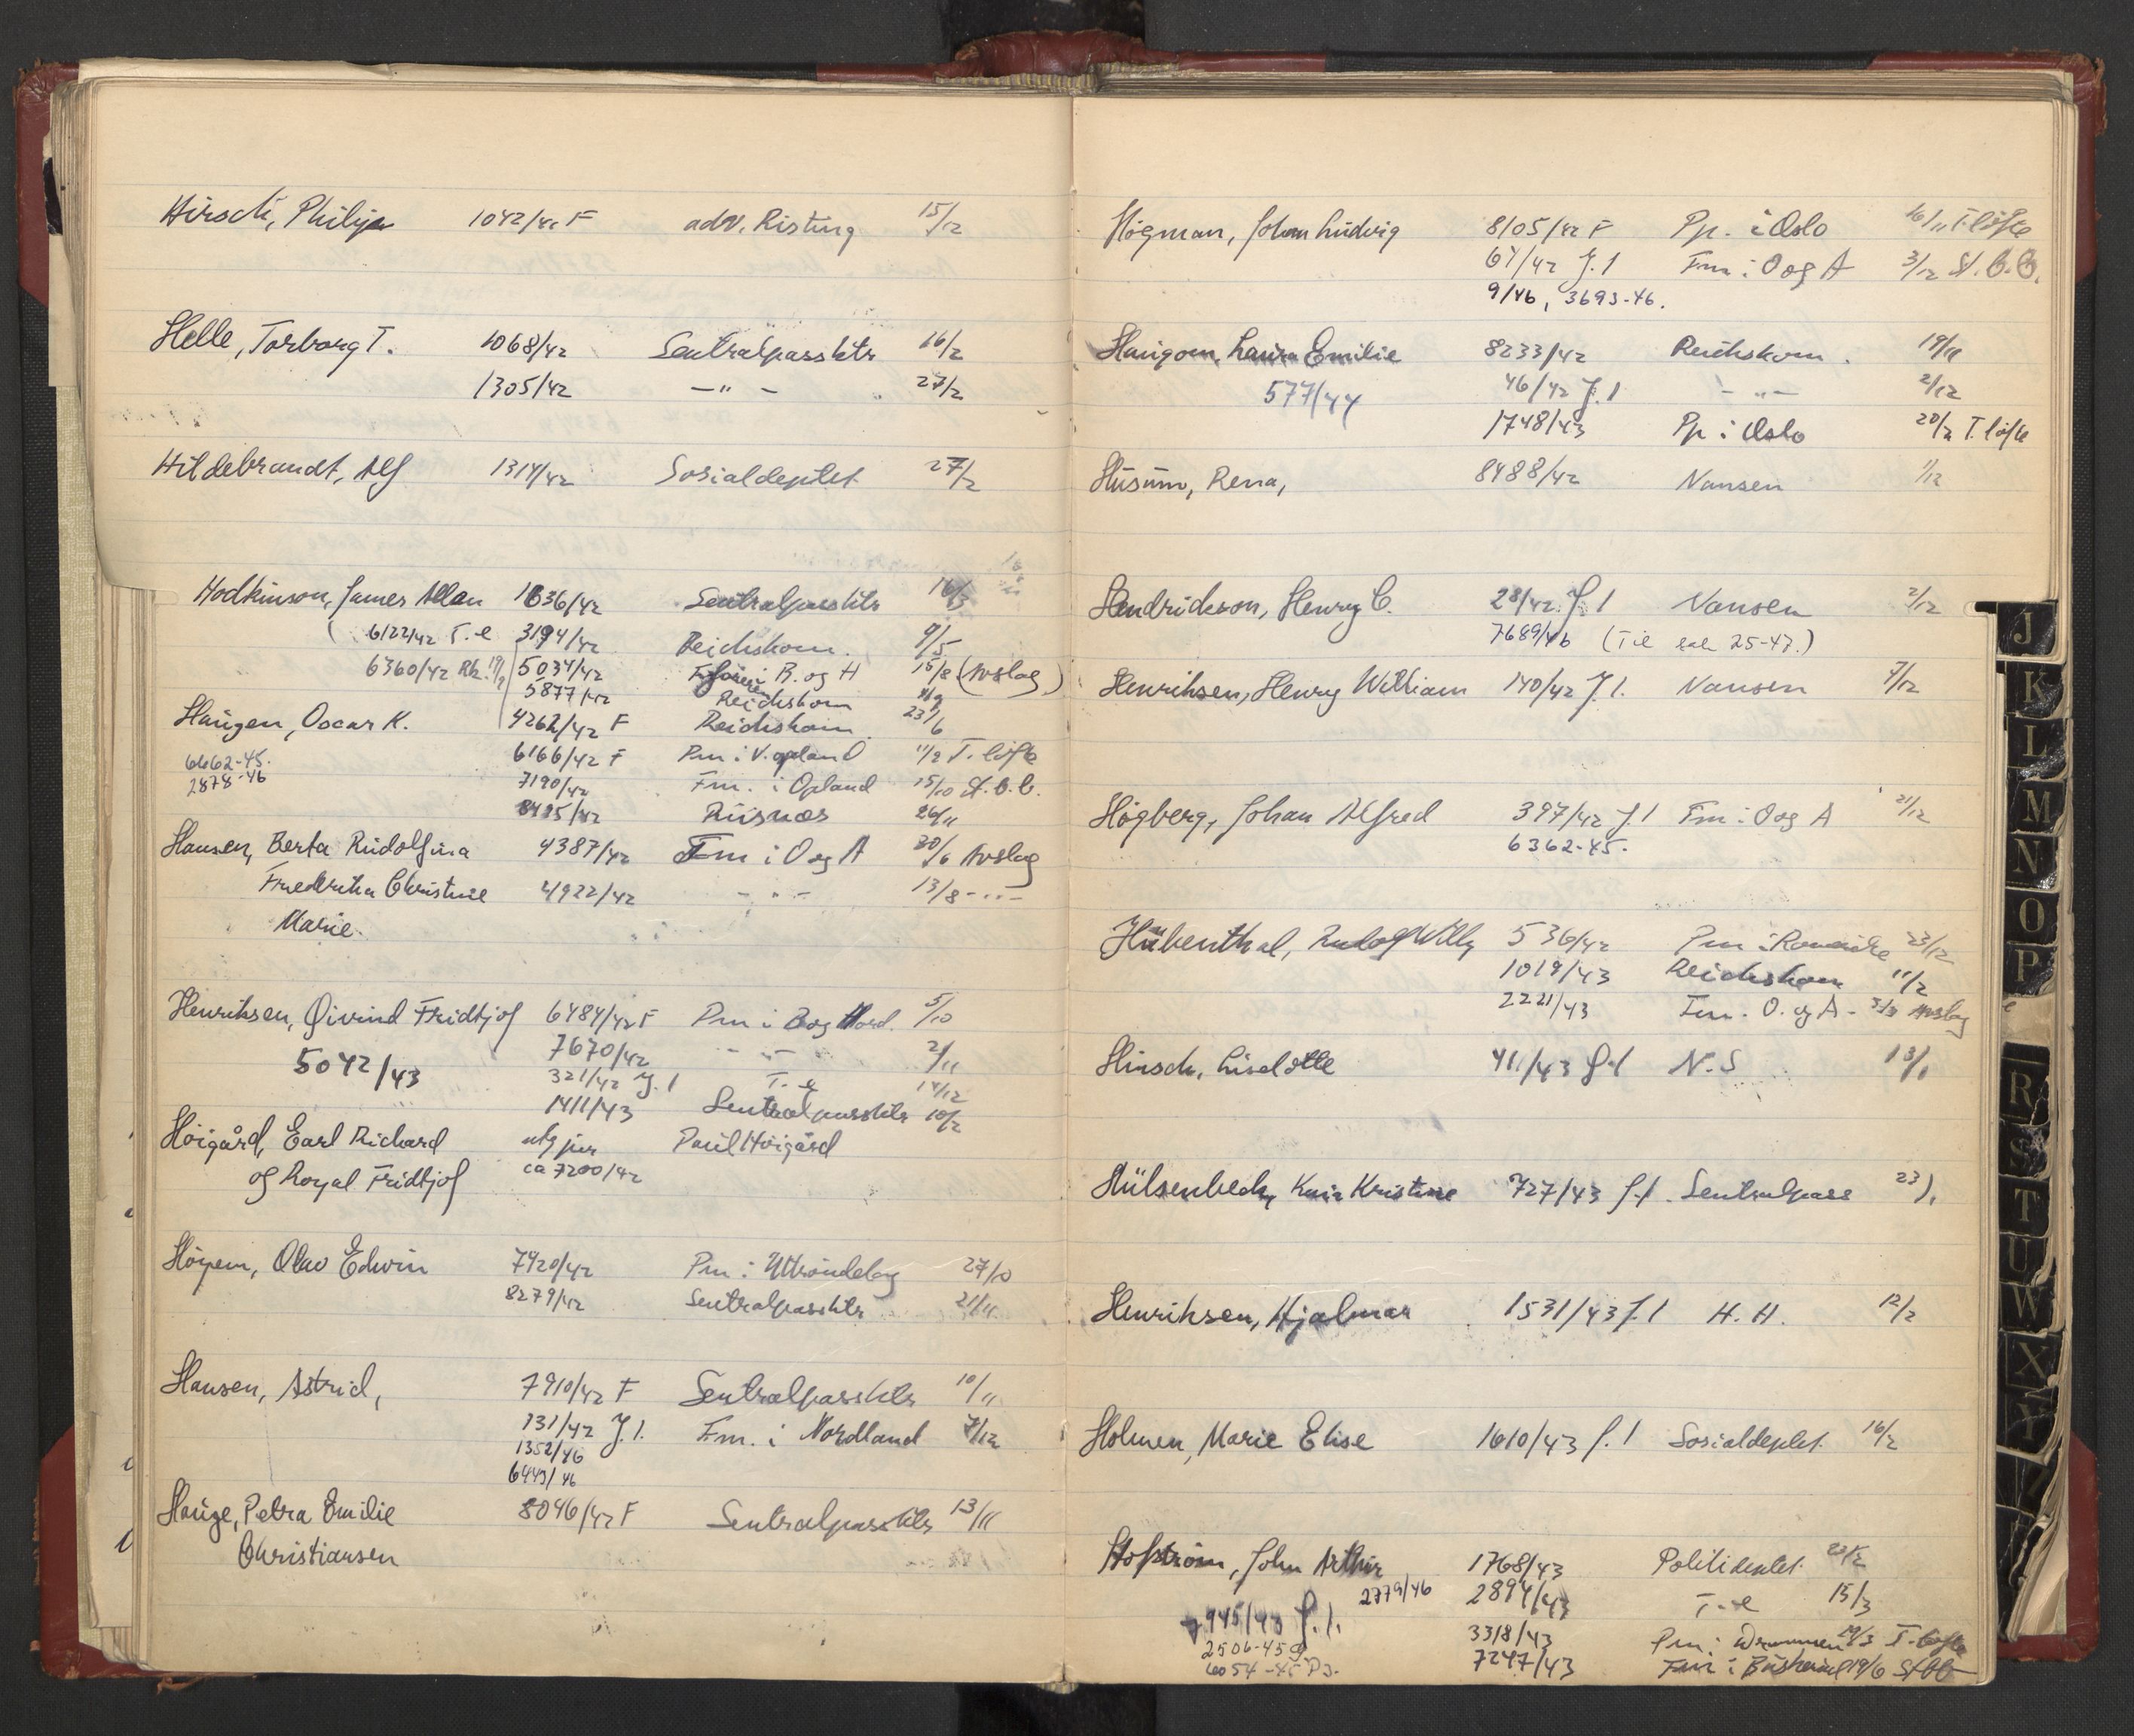 Hirsch, Philip 1042/42 F adv. Risting 15/12
Helle, Torborg T. 1068/42 Sentralpassktr 16/2
1305/42 —"— 27/2
Hildebrandt, Alf 1314/42 Sosialdeptet 27/2
Hodkinson, James Allan 1636/42 Sentralpassktr 16/3
(6122/42 T.e 3194/42 Reichskom. 9/5
6360/42 Rk. 5034/42 B. og H 15/8 (Avslag)
5877/42 Reichskom
Haugen, Oscar K. 4262/42 F Reichskom. 23/6
6662-45. 6166/42 F Pm i V. opland 11/9 T. löfte
2878-46 7190/42 Fm. i Opland 15/10 St. b. b.
8495/42 Riisnæs 26/11
Hansen, Berta Rudolfina 4387/42 Fm i O og A 20/6 Avslag
Frederika Christine 4922/42 -"- 13/8 -"-
Marie.
Henriksen, Øivind Fridtjof 6484/42 F Pm i B og Nord. 5/10
5042/43 7670/42 -"- 2/11
321/42 J.1 T.e 14/12
1411/43 Sentralpassktr 10/2
Höigård, Earl Richard utg jur Paul Höigård
og Royal Fridtjof ca 7200/42
Höyem, Olav Edwin 7420/42 Pm i Uttröndelag 27/10
8279/42 Sentralpassktr 21/11
Hansen, Astrid, 7910/42 F Sentralpassktr 10/11
131/42 J.1. Fm. i Nordland 7/12
1352/46
6443/46
Hauge, Petra Emilie 8046/42 F Sentralpassktr 13/11
Christiansen
Högman, Johan Ludvig 8105/42 F Pp. i Oslo 16/11 T. löfte
67/42 J.1 Fm i O og A 3/12 St. b. b.
9/46, 3693-46.
Haugom, Laura Emilie 8233/42 Reichskom. 19/11
577/44 46/42 J.1 -"- 2/12
1748/43 Pp i Oslo 20/2 T. löfte
Husum, Rena, 8488/42 Nansen 1/12
Hendrickson, Henry C. 28/42 J.1 Nansen 2/12
7689/46 (Til sak 25-47.)
Henriksen, Henry William 140/42 J.1. Nansen 7/12
Högberg, Johan Alfred 397/42 J.1 Fm i O og A 21/12
6362-45.
Hübenthal, Rudolf Willy 536/42 Pm i Romerike 23/12
1019/43 Reichskom 11/2
2221/43 Fm. O. og A - Avslag
Hinsch, Liselotte 411/43 J.1 N.S 13/1
Hülsenbech, Kristine 727/43 J.1. Sentralpass 23/1
Henriksen, Hjalmar 1531/43 J.1 H. H. 12/2
Holmen, Marie Elise 1610/43 J.1 Sosialdeptet 16/2
Hofström, John Arthur 1768/43 Politideptet 22/2
2779/46 2894/43 T.e 15/3
7945/43 J.1. 3318/43 Pm i Drammen T. löfte
2506-45 7247/43 Fm i Buskerud 19/6 St b b
6054-45
J
K
L
M
N
O
P
R
S
T
U
W
X
Y